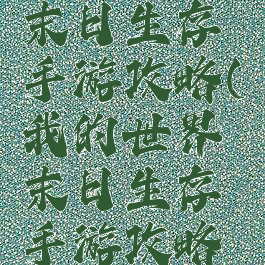 末日生存
手游攻略(
我的世界
末日生存
手游攻略